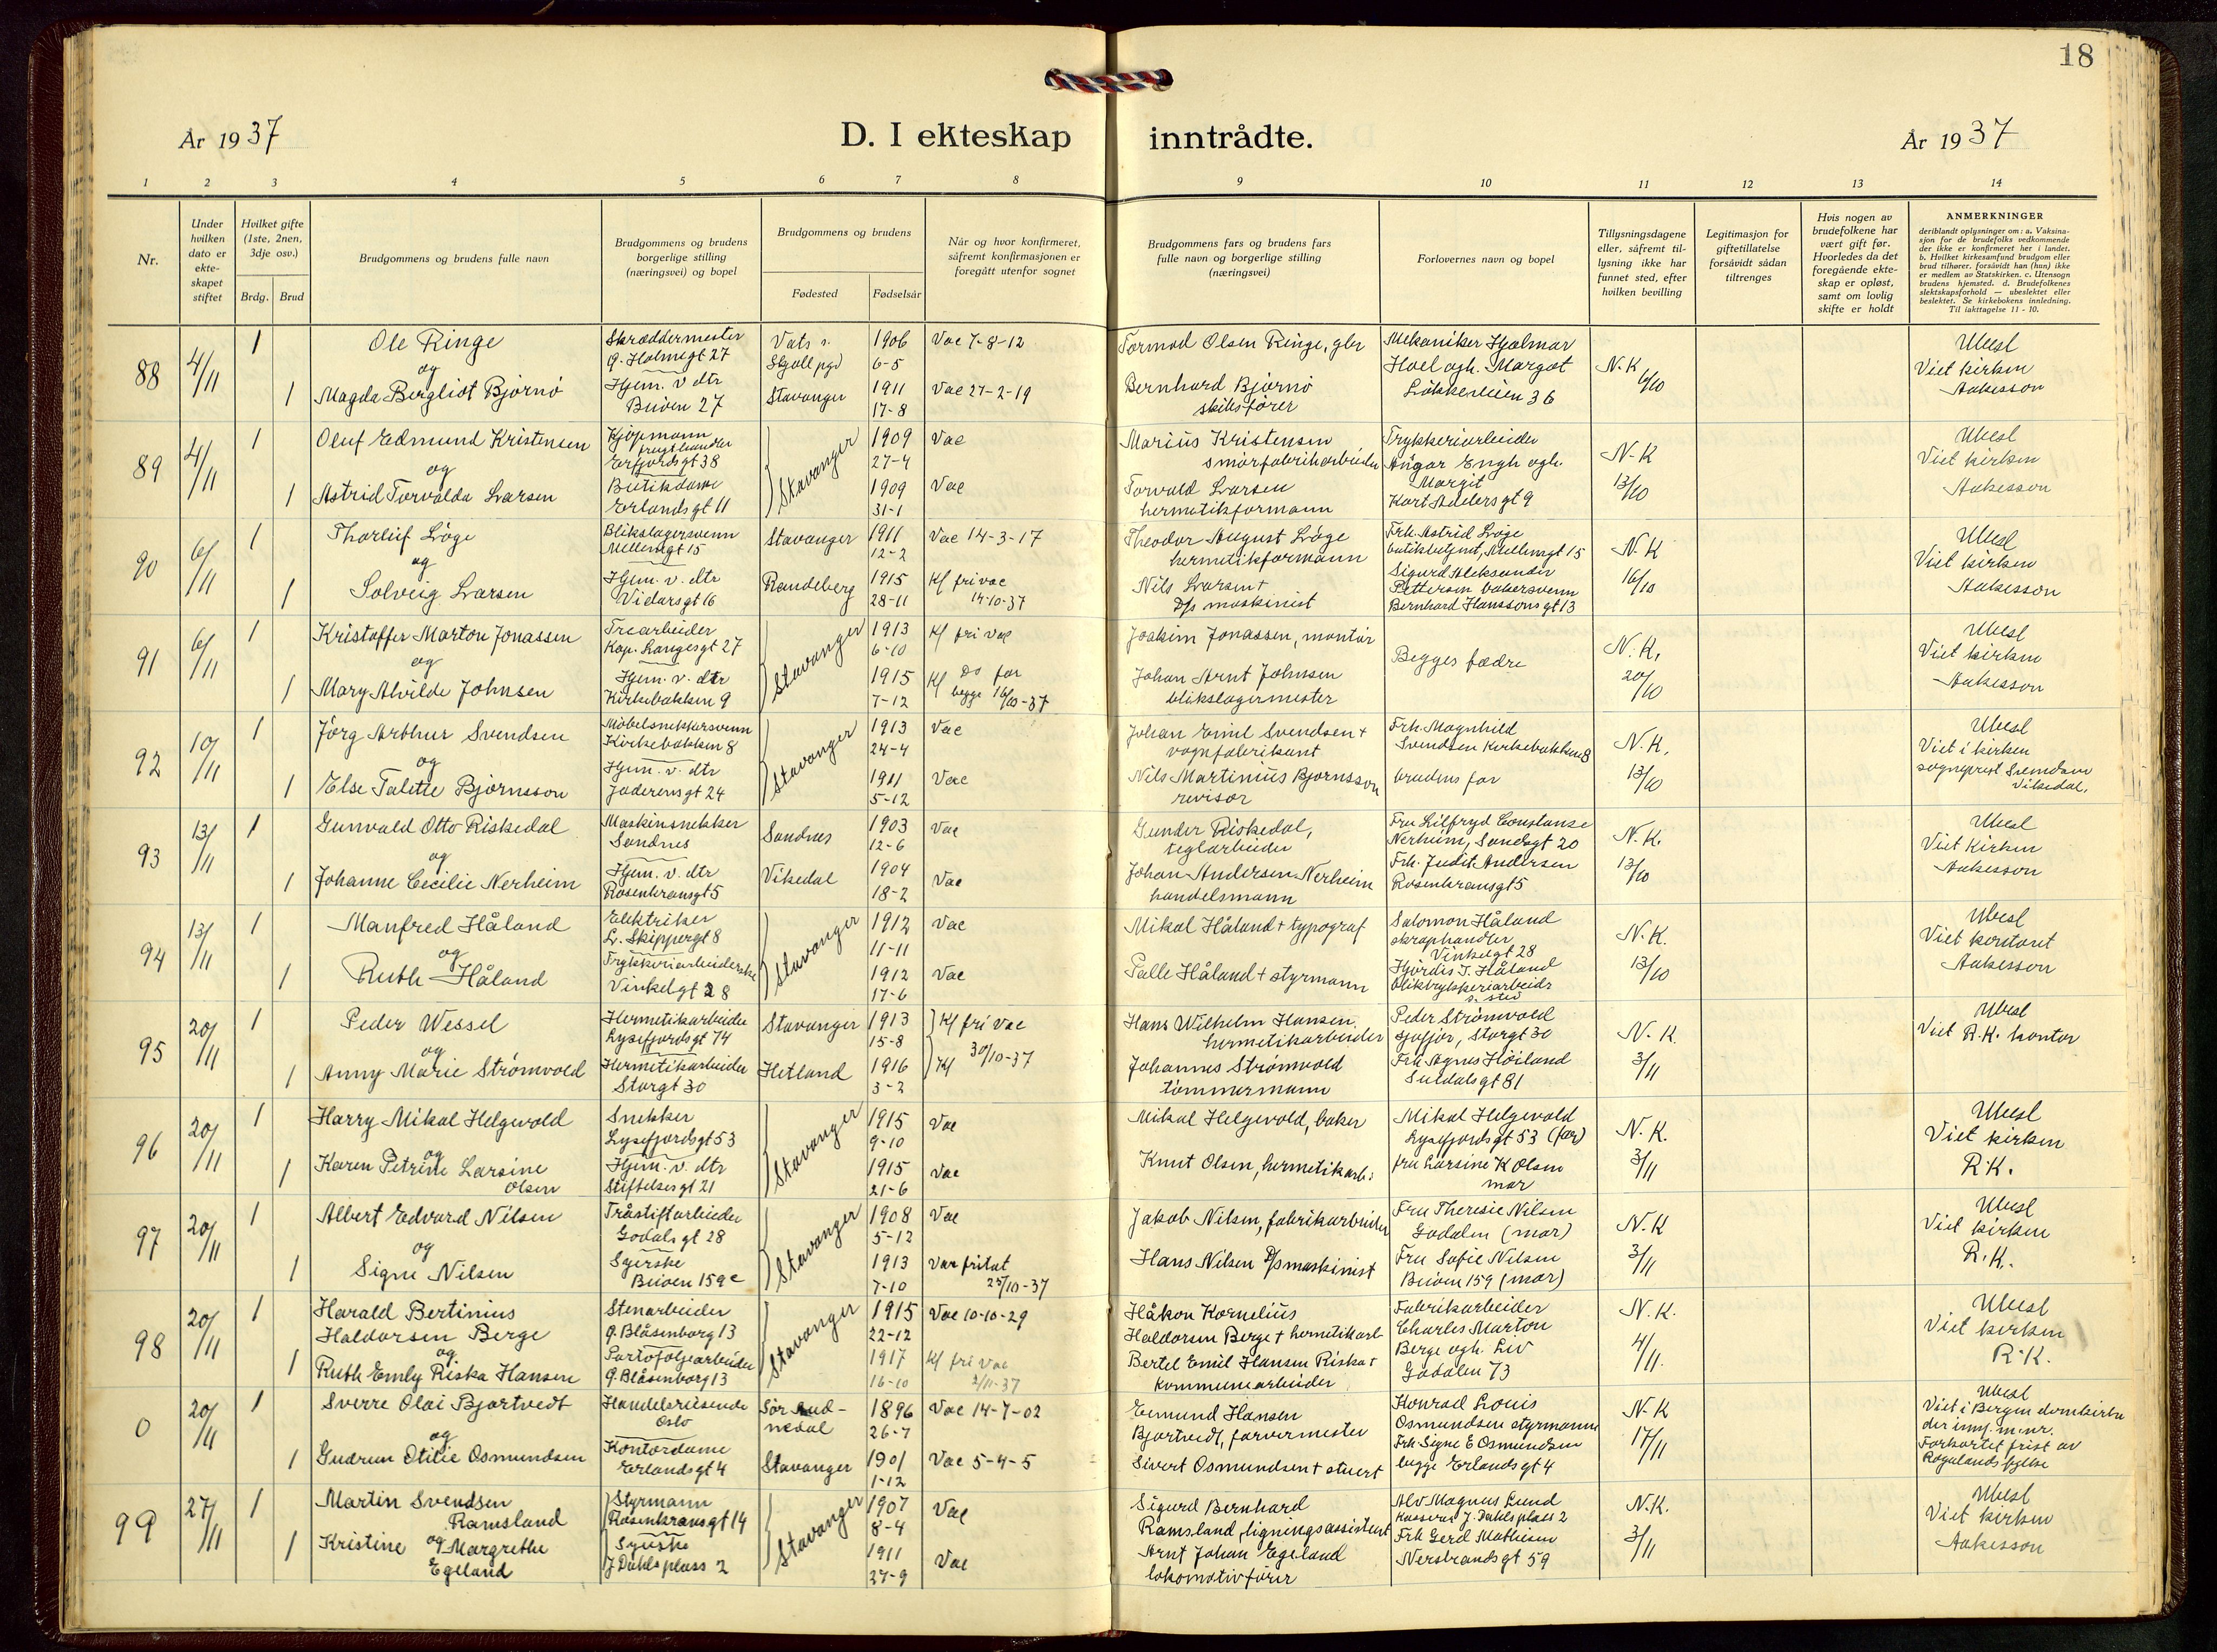 18
År 1937
D. I ekteskap inntrådte.
År 1937
1 2 3 4 5 6 7 8 9 10 11 12 13 14
Nr.
Under hvilken dato er ekte- skapet stiftet
Hvilket gifte (1ste, 2nen, 3dje osv.)
Brdg. Brud
Brudgommens og brudens fulle navn
Brudgommens og brudens borgerlige stilling (næringsvei) og bopel
Brudgommens og brudens
Fødested
Fødselsår
Når og hvor konfirmeret, såfremt konfirmasjonen er foregått utenfor sognet
Brudgommens fars og brudens fars fulle navn og borgerlige stilling (næringsvei)
Forlovernes navn og bopel
Tillysningsdagene eller, såfremt til- lysning ikke har funnet sted, efter hvilken bevilling
Legitimasjon for giftetillatelse forsåvidt sådan tiltrenges
Hvis nogen av brudefolkene har vært gift før. Hvorledes da det foregående ekte- skap er opløst, samt om lovlig skifte er holdt
ANMERKNINGER
deriblandt oplysninger om: a. Vaksina- sjon for de brudefolks vedkommende der ikke er konfirmeret her i landet. b. Hvilket kirkesamfund brudgom eller brud tilhører, forsåvidt han (hun) ikke er medlem av Statskirken. c. Utensogn brudens hjemsted. d. Brudefolkenes slektskapsforhold — ubeslektet eller beslektet. Se kirkebokens innledning. Til iakttagelse 11 - 10.
88 4/11 1 Ole Ringe Skræddermester 1906 Vac 7-8-12 Tormod Olsen Ringe, gbr Mekaniker Hjalmar Ubesl
og G. Holmegt 27 6-5 Hoel ogh. Margot N.K Viet kirken
1 Magda Bergliot Bjørnø Hjem. v dtr Stavanger 1911 Vac 27-2-19 Bernhard Bjørnø Løkkeveien 36 Aakesson
Buøen 27 17-8 skibsfører
89 4/11 1 Oluf Edmund Kristensen Kjøpmann Stavanger 1909 Vac Marius Kristensen Trykkeriarbeider Ubesl
og Erfjordsgt 38 27-4 smørfabrikarbeider Ansgar Engh ogh. N-K Viet kirken
1 Astrid Torvalda Larsen Butikdame 1909 Vac Torvald Larsen Margit 13/10 Aakesson
Erlandsgt 11 31-1 hermetikformann Kort Adelersgt 9
90 6/11 1 Thorleif Løge Blikslagersvenn Stavanger 1911 Vac 14-3-17 Theodor August Løge Frk. Astrid Løge Ubesl
og Mellemgt 15 12-2 hermetikformann Mellemgt 15 N.K Viet kirken
1 Solveig Larsen Hjem. v. dtr Randeberg 1915 Kf fri vac Nils Larsen + Sigurd Aleksander 16/10 Aakesson
Vidarsgt 16 28-11 14-10-37 D/s maskinist Pettersen bakersvenn
Bernhard Hanssonsgt 13
91 6/11 1 Kristoffer Marton Jonassen Trearbeider Stavanger 1913 Kf fri vac Joakim Jonassen, montør Ubesl
og Kap. Langesgt 27 6-10 Begges fædre N.K. Viet kirken
1 Mary Alvilde Johnsen Hjem. v. dtr 1915 Kf Do for Johan Arnt Johnsen 20/10 Aakesson
Kirkebakken 9 7-12 begge 16/10-37 blikslagermester
92 10/11 1 Jørg Arthur Svendsen Møbelsnekkersvenn Stavanger 1913 Vac Johan Emil Svendsen + Frk. Magnhild Ubesl
og Kirkebakken 8 24-4 vognfabrikant Svendsen Kirkebakken 8 N.K. Viet i kirken
1 Else Talette Bjørnsson Hjem. v. dtr 1911 Vac Nils Martinius Bjørnsson brudens far 13/10 sogneprest
Jæderensgt 24 5-12 revisor Vikedal.
93 13/11 1 Gunvald Otto Riskedal Maskinsnekker Sandnes 1903 Vac Gunder Riskedal, Fru Lilfryd Constanse Ubesl
og Sandnes 12-6 teglarbeider Nerheim, Sandsgt 20 N.K. Viet kirken
1 Johanne Cecilie Nerheim Hjem. v. dtr Vikedal 1904 Vac Johan Andersen Nerheim Frk. Judit Andersen 13/10 Aakesson
Rosenkransgt 5 18-2 handelsmann Rosenkransgt 5
94 13/11 1 Manfred Håland Elektriker Stavanger 1912 Vac Mikal Håland + typograf Salomon Håland Ubesl
og L. Skippergt 8 11-11 skraphandler N.K. Viet kontoret
1 Ruth Håland Trykkeriarbeiderske 1912 Vac Palle Håland + styrmann Vinkelgt 28 13/10 Aakesson
Vinkelgt 28 17-6 Hjørdis T. Håland
bliktrykkeriarbeider
s. sted
95 20/11 1 Peder Wessel Hermetikarbeider Stavanger 1913 Kf fri vac Hans Wilhelm Hansen. Peder Strømvold Ubesl
og Lysefjordsgt 74 15-8 30/10-37 hermetikarbeider sjåfør, Storgt 30 N.K. Viet R.K. kontor
1 Anny Marie Strømvold Hermetikarbeider Hetland 1916 Kf Johannes Strømvold Frk Agnes Høiland 3/11
Storgt 30 3-2 tømmermann Suldalsgt 81
96 20/11 1 Harry Mikal Helgevold Snekker Stavanger 1915 Vac Mikal Helgevold, baker Mikal Helgevold Ubesl
og Lysefjordsgt 53 9-10 Lysefjordsgt 53 (far) N.K. Viet kirken
1 Karen Petrine Larsine Hjem. v. dtr 1915 Vac Knut Olsen, hermetikarb. fru Larsine K Olsen 3/11 R.K.
Olsen Stiftelsesgt 21 21-6 mor
97 20/11 1 Albert Edvard Nilsen Tråstiftarbeider Stavanger 1908 Vac Jakob Nilsen, fabrikarbeider Fru Theresie Nilsen Ubesl
og Godalsgt 28 5-12 Godalen (mor) N.K Viet kirken
1 Signe Nilsen Syerske 1913 Var fritat Hans Nilsen D/s maskinist Fru Sofie Nilsen 3/11 R.K.
Buøen 159c 7-10 25/10-37 Buøen 159 (mor)
98 20/11 1 Harald Bertinius Stenarbeider Stavanger 1915 Vac 10-10-29 Håkon Kornelius Fabrikarbeider N.K. Ubesl
Haldorsen Berge Ø. Blåsenborg 13 22-12 Haldorsen Berge + hermetikarb Charles Marton 4/11. Viet kirken
og Portofoljearbeider 1917 Kf fri vac Bertel Emil Hansen Riska + Berge ogh. Liv R.K.
1 Ruth Emly Riska Hansen Ø. Blåsenborg 13 16-10 2/11-37 kommunearbeider Godalen 73
0 20/11 1 Sverre Olai Bjartvedt Handelsreisende Sør Aud- 1896 Vac 14-7-02 Edmund Hansen Konrad Louis N.K Ubesl
og Oslo nedal 26-7 Bjartvedt, farvermester Osmundsen styrmann 17/11 Viet i Bergen domkirke
1 Gudrun Otilie Osmundsen Kontordame Stavanger 1901 Vac 5-4-5 Sivert Osmundsen + stuert Frk Signe E Osmundsen der innf. m. nr.
Erlandsgt 4 1-12 begge Erlandsgt 4 Forkortet frist av
Rogalands fylke
99 27/11 1 Martin Svendsen Styrmann Stavanger 1907 Vac Sigurd Bernhard Alv Magnus Lund N.K. Ubesl
Ramsland Rosenkransgt 14 8-4 Ramsland, ligningsassistent Kasserer J. Dahls plass 2 3/11 Viet kirken
1 Kristine og Margrethe Syerske 1911 Vac Arnt Johan Egeland Frk Gerd Mathisen Aakesson
Egeland J Dahls plass 2 27-9 lokomotivfører Nersbrandsgt 59